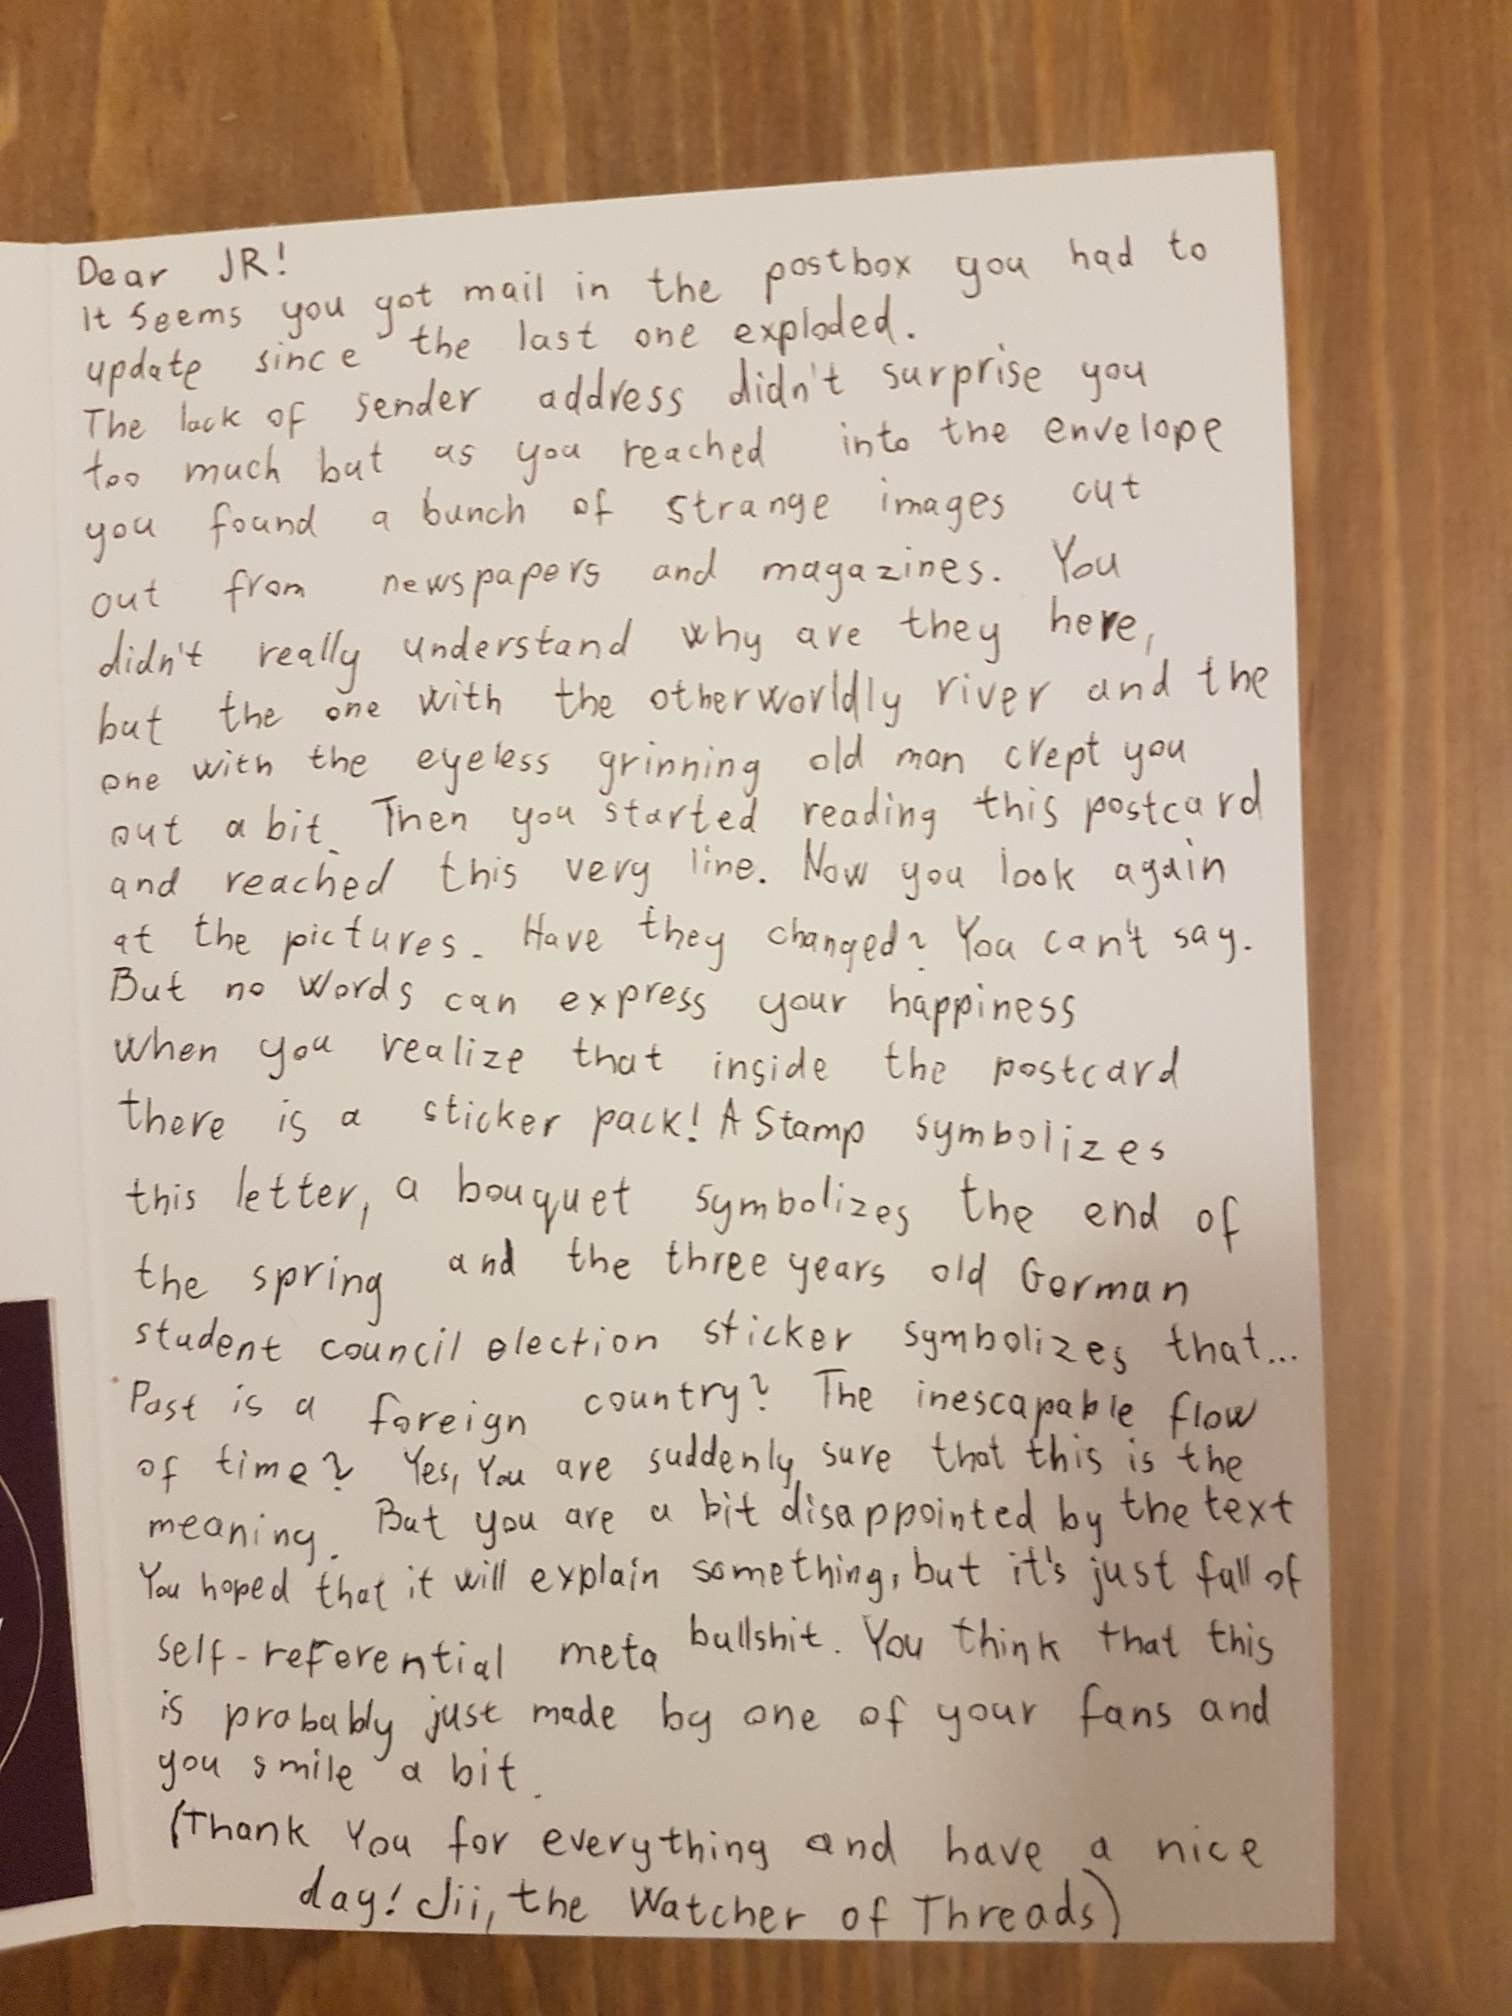 Dear JR!
It seems you got mail in the postbox you had to
update since the last one exploded.
The lack of sender address didn't surprise you
too much but as you reached into the envelope
you found a bunch of strange images cut
out from newspapers and magazines. You
didn't really understand why are they here,
but the one with the otherworldly river and the
one with the eyeless grinning old man crept you
out a bit. Then you started reading this postcard
and reached this very line. Now you look again
at the pictures. Have they changed? You can't say.
But no words can express your happiness
when you realize that inside the postcard
there is a sticker pack! A Stamp symbolizes
this letter, a bouquet symbolizes the end of
the spring and the three years old German
student council election sticker symbolizes that...
Past is a foreign country? The inescapable flow
of time? Yes, You are suddenly sure that this is the
meaning. But you are a bit disappointed by the text
You hoped that it will explain something, but it's just full of
self-referential meta bullshit. You think that this
is probably just made by one of your fans and
you smile a bit.
(Thank You for everything and have a nice
day! Jii, the Watcher of Threads)